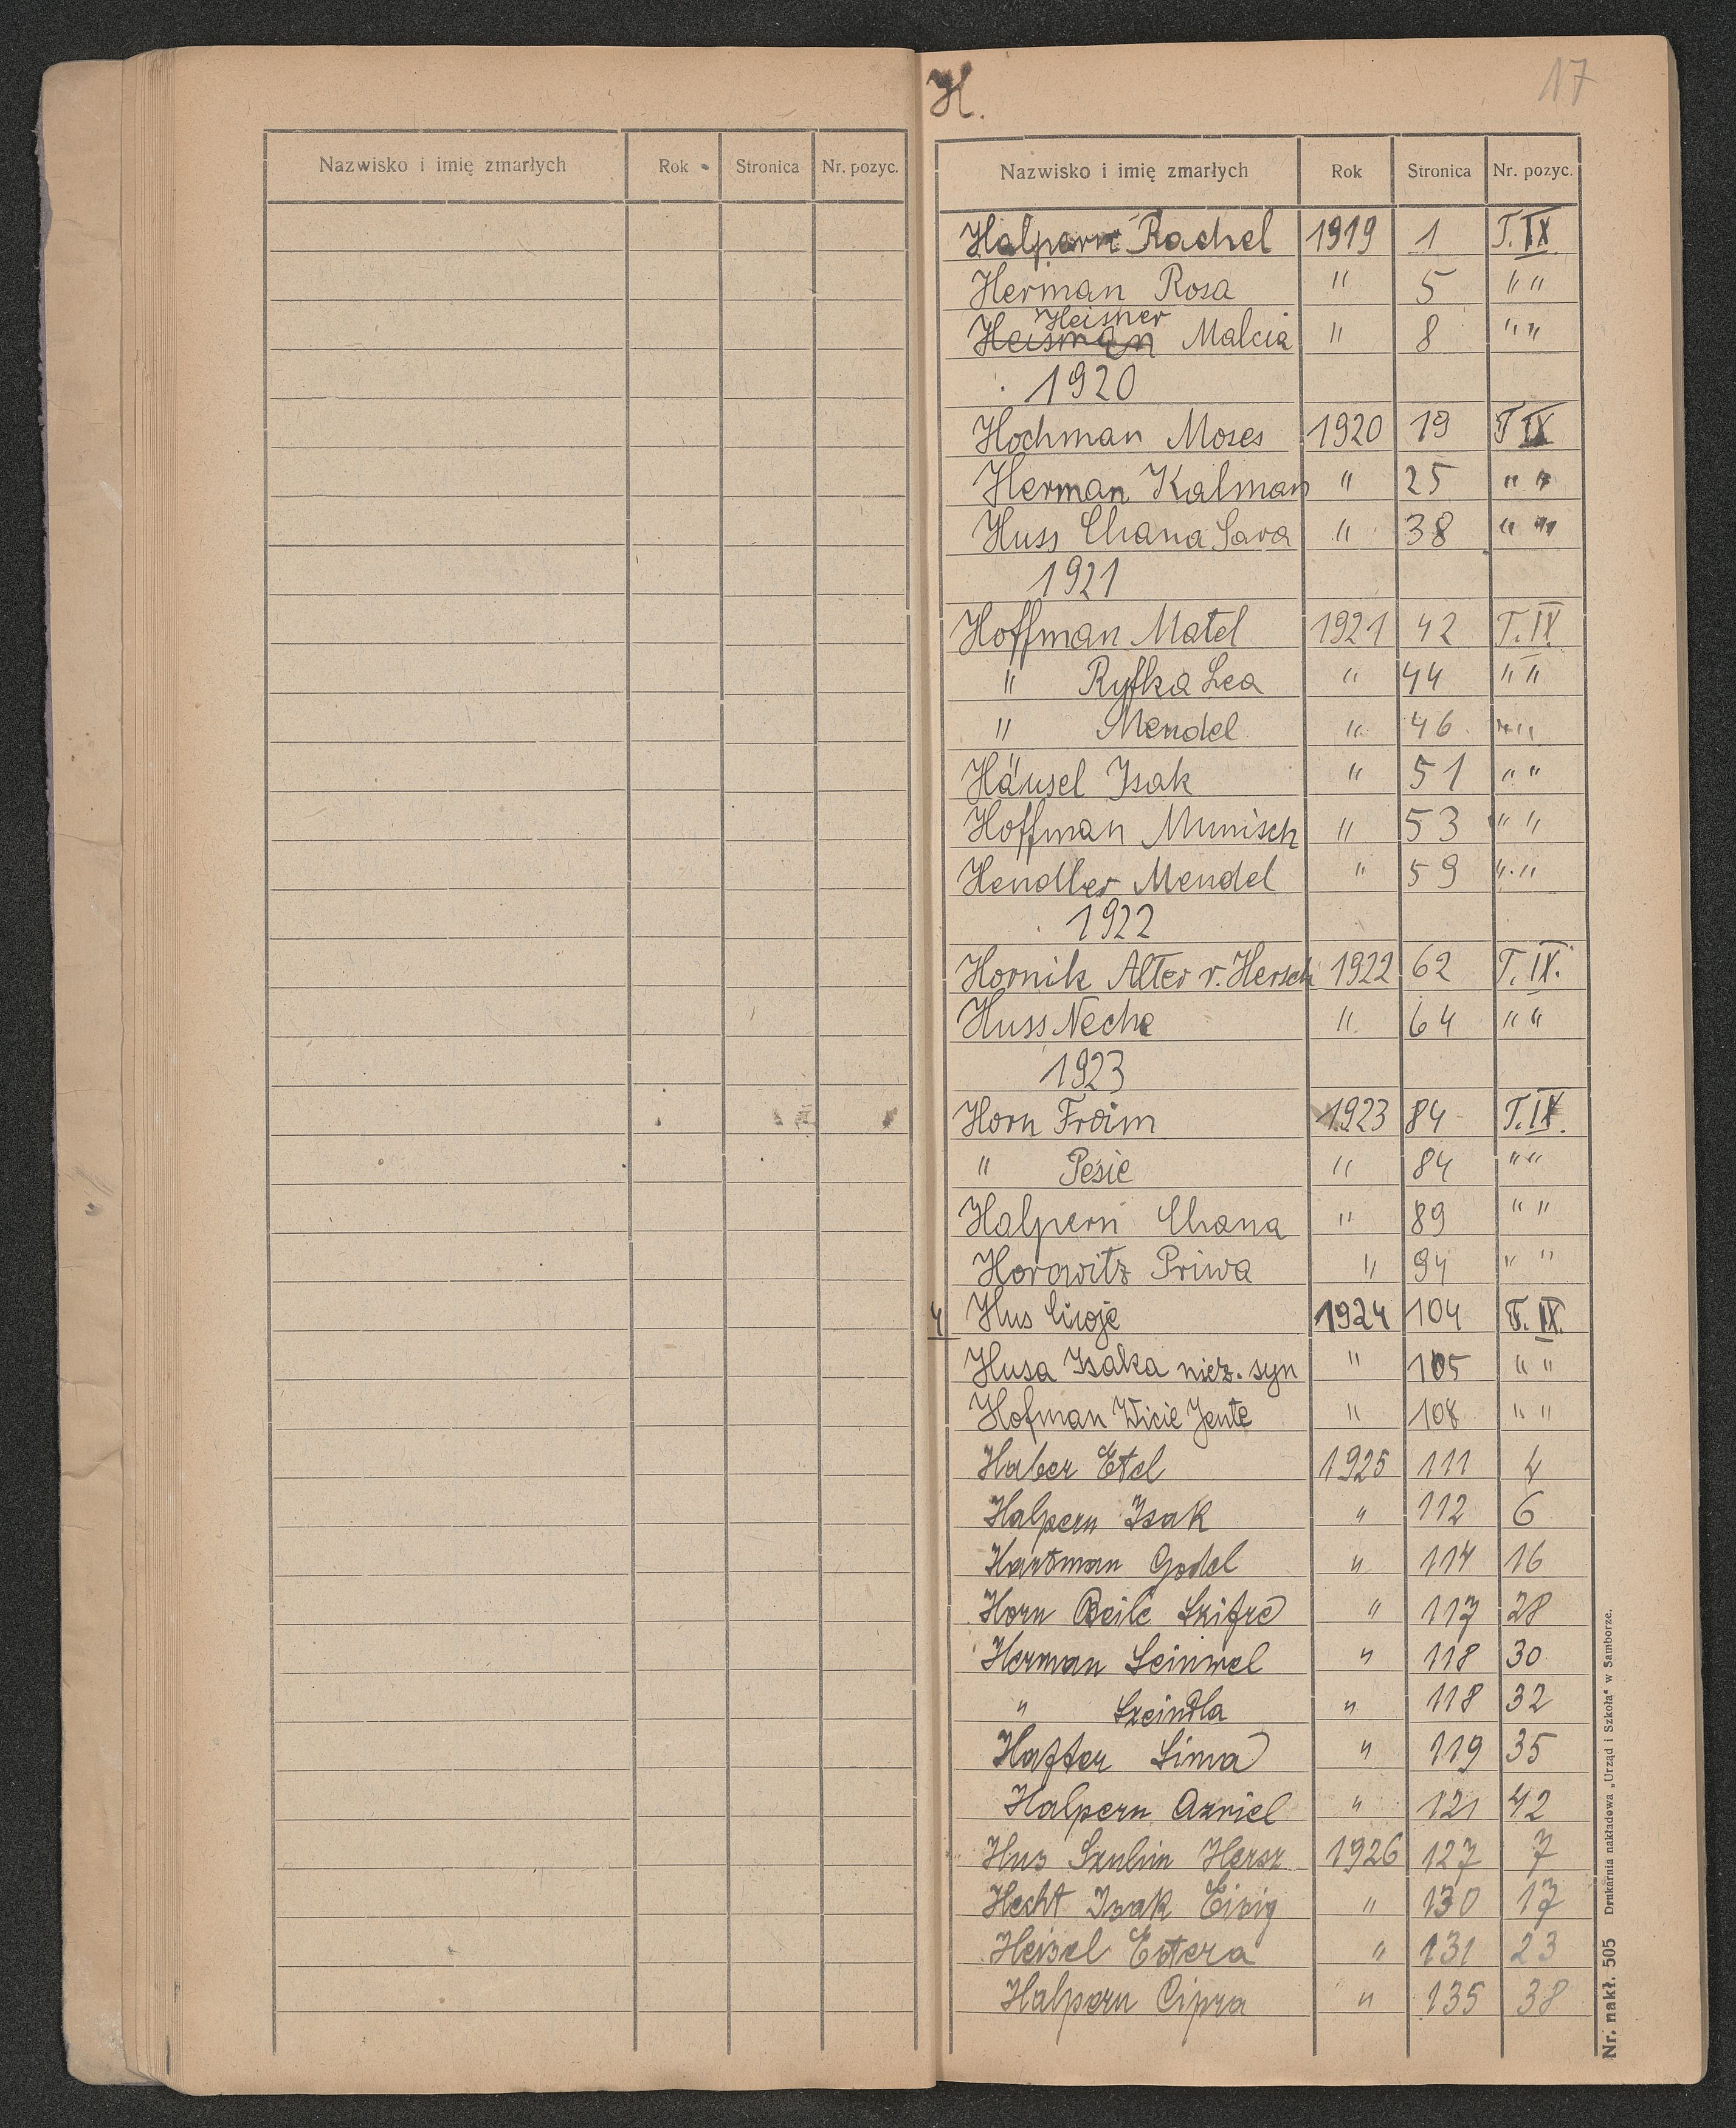 H.
17
Nazwisko i imię zmarłych Rok Stronica Nr. pozyc.
Nazwisko i imię zmarłych Rok Stronica Nr. pozyc.
Halpern Rachel 1919 1 T. IX
Herman Rosa " 5 " "
Heisner
Heisman Malcia " 8 " "
1920
Hochman Moses 1920 19 T IX
Herman Kalman " 25 " "
Huss Chana Sara " 38 " "
1921
Hoffman Matel 1921 42 T. IX
" Ryfka Lea " 44 " "
" Mendel " 46 " "
Häusel Isak " 51 " "
Hoffman Munisch " 53 " "
Hendler Mendel " 59 " "
1922
Hornik Alter v. Hersch 1922 62 T. IX.
Huss Neche " 64 " "
1923
Horn Froim 1923 84 T. IX.
" Pesie " 84 " "
Halpern Chana " 89 " "
Horowitz Priwa " 94 " "
4 Hus 1924 104 T. IX.
Husa Isaka niez. syn " 105 " "
Hofman Wicie Jente " 108 " "
Haber Etel 1925 111 4
Halpern Isak " 112 6
Hartman Godel " 114 16
Horn Beile Szifre " 117 28
Herman Leinwel " 118 30
" Szeindla " 118 32
Haffer Sima " 119 35
Halpern Azriel " 121 42
Hus Szulim Hersz 1926 127 7
Hecht Isak Eisig " 130 17
Heisel Estera " 131 23
Halpern Cipra " 135 38
Nr. nakł. 505 Drukarnia nakładowa „Urząd i Szkoła" w Samborze.